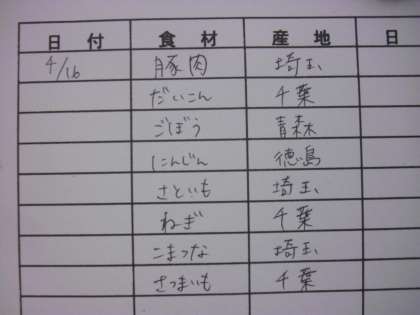 日付 食材 産地 日
4/16 豚肉 埼玉
だいこん 千葉
ごぼう 青森
にんじん 徳島
さといも 埼玉
ねぎ 千葉
こまつな 埼玉
さつまいも 千葉